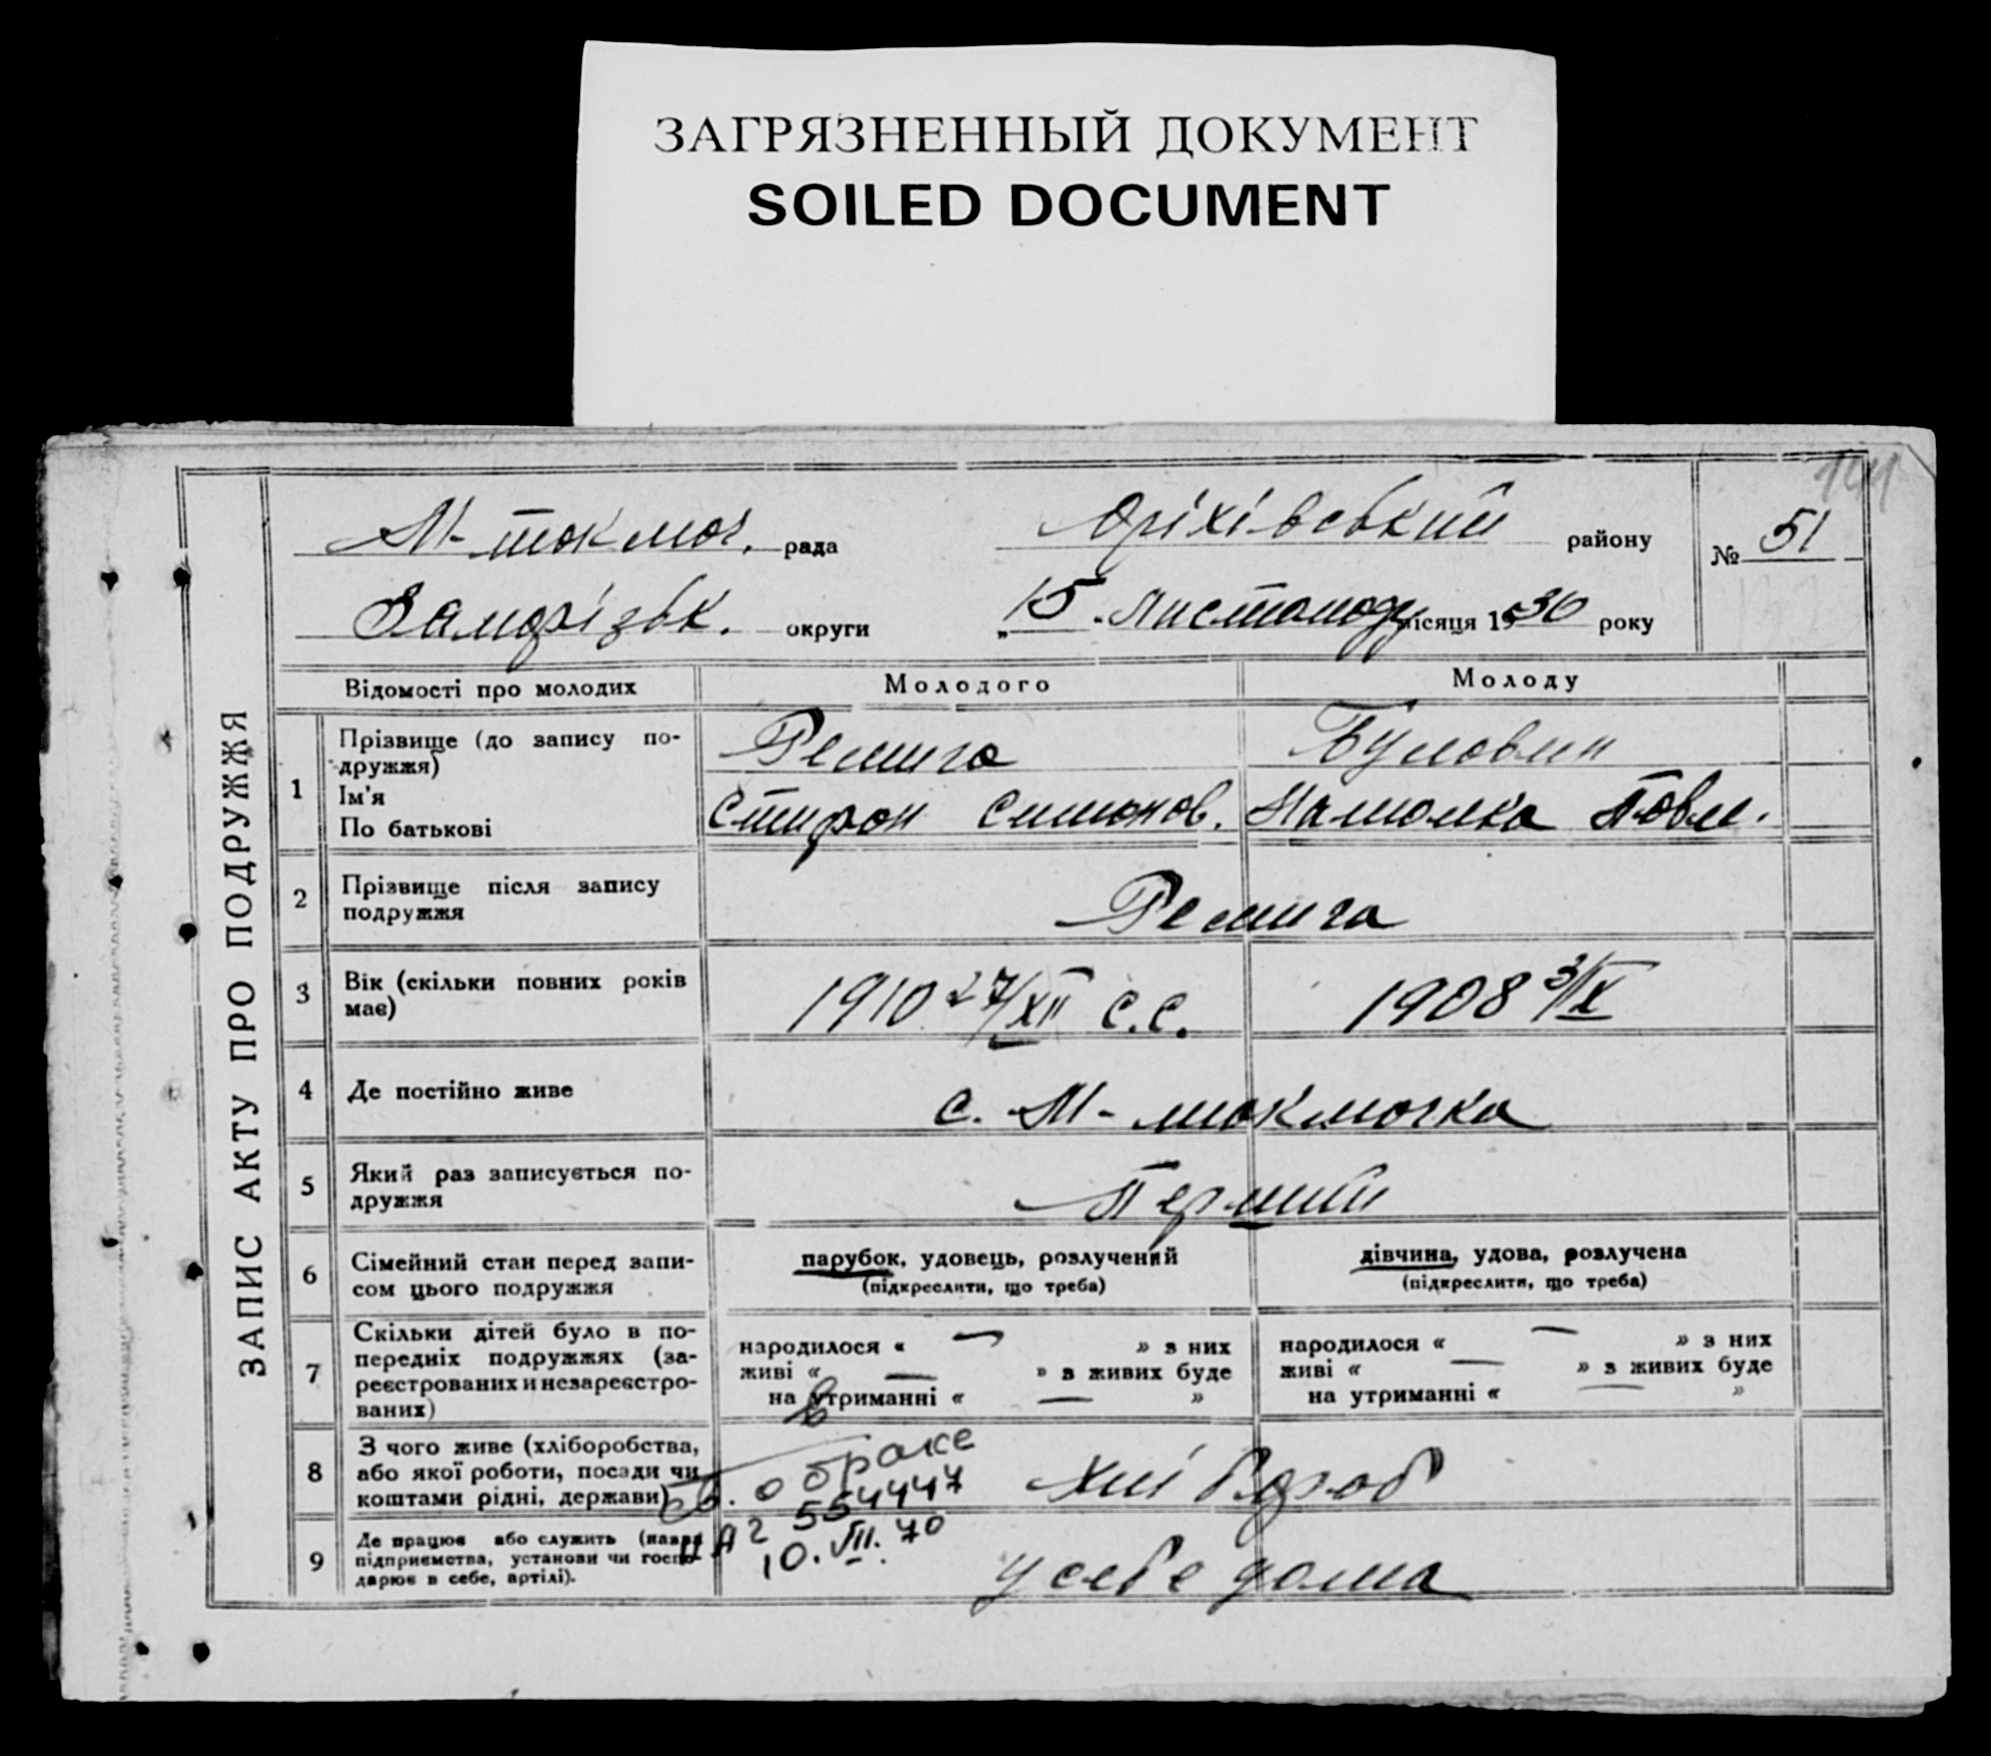 ЗАГРЯЗНЕННЫЙ ДОКУМЕНТ
SOILED DOCUMENT
ЗАПИС АКТУ ПРО ПОДРУЖЖЯ
М-токмач. рада Оріхівський району № 51
Запорізьк. округи „15 „ Листопаду місяця 1930 року
Відомості про молодих Молодого Молоду
1 Прізвище (до запису по-
дружжя) Ремига
Ім'я
По батькові
2 Прізвище після запису
подружжя Ремига
3 Вік (скільки повних років
має) 1910 27/XII с.с. 1908 3/IX
4 Де постійно живе с. М-токмачка
5 Який раз записується по-
дружжя Перший
6 Сімейний стан перед запи-
сом цього подружжя парубок, удовець, розлучений дівчина, удова, розлучена
(підкреслити, що треба) (підкреслити, що треба)
7 Скільки дітей було в по-
передніх подружжях (за-
реєстрованих и незареєстро-
ваних)
народилося « — » з них народилося « — » з них
живі « — » з живих буде живі « — » з живих буде
на утриманні « — » на утриманні « — »
8 З чого живе (хліборобства,
або якої роботи, посади чи
коштами рідні, держави) Хлібороб
св. о браке
554447
10. VII. 70
9 Де працює або служить (назва
підприємства, установи чи госпо-
дарює в себе, артілі). у себе дома